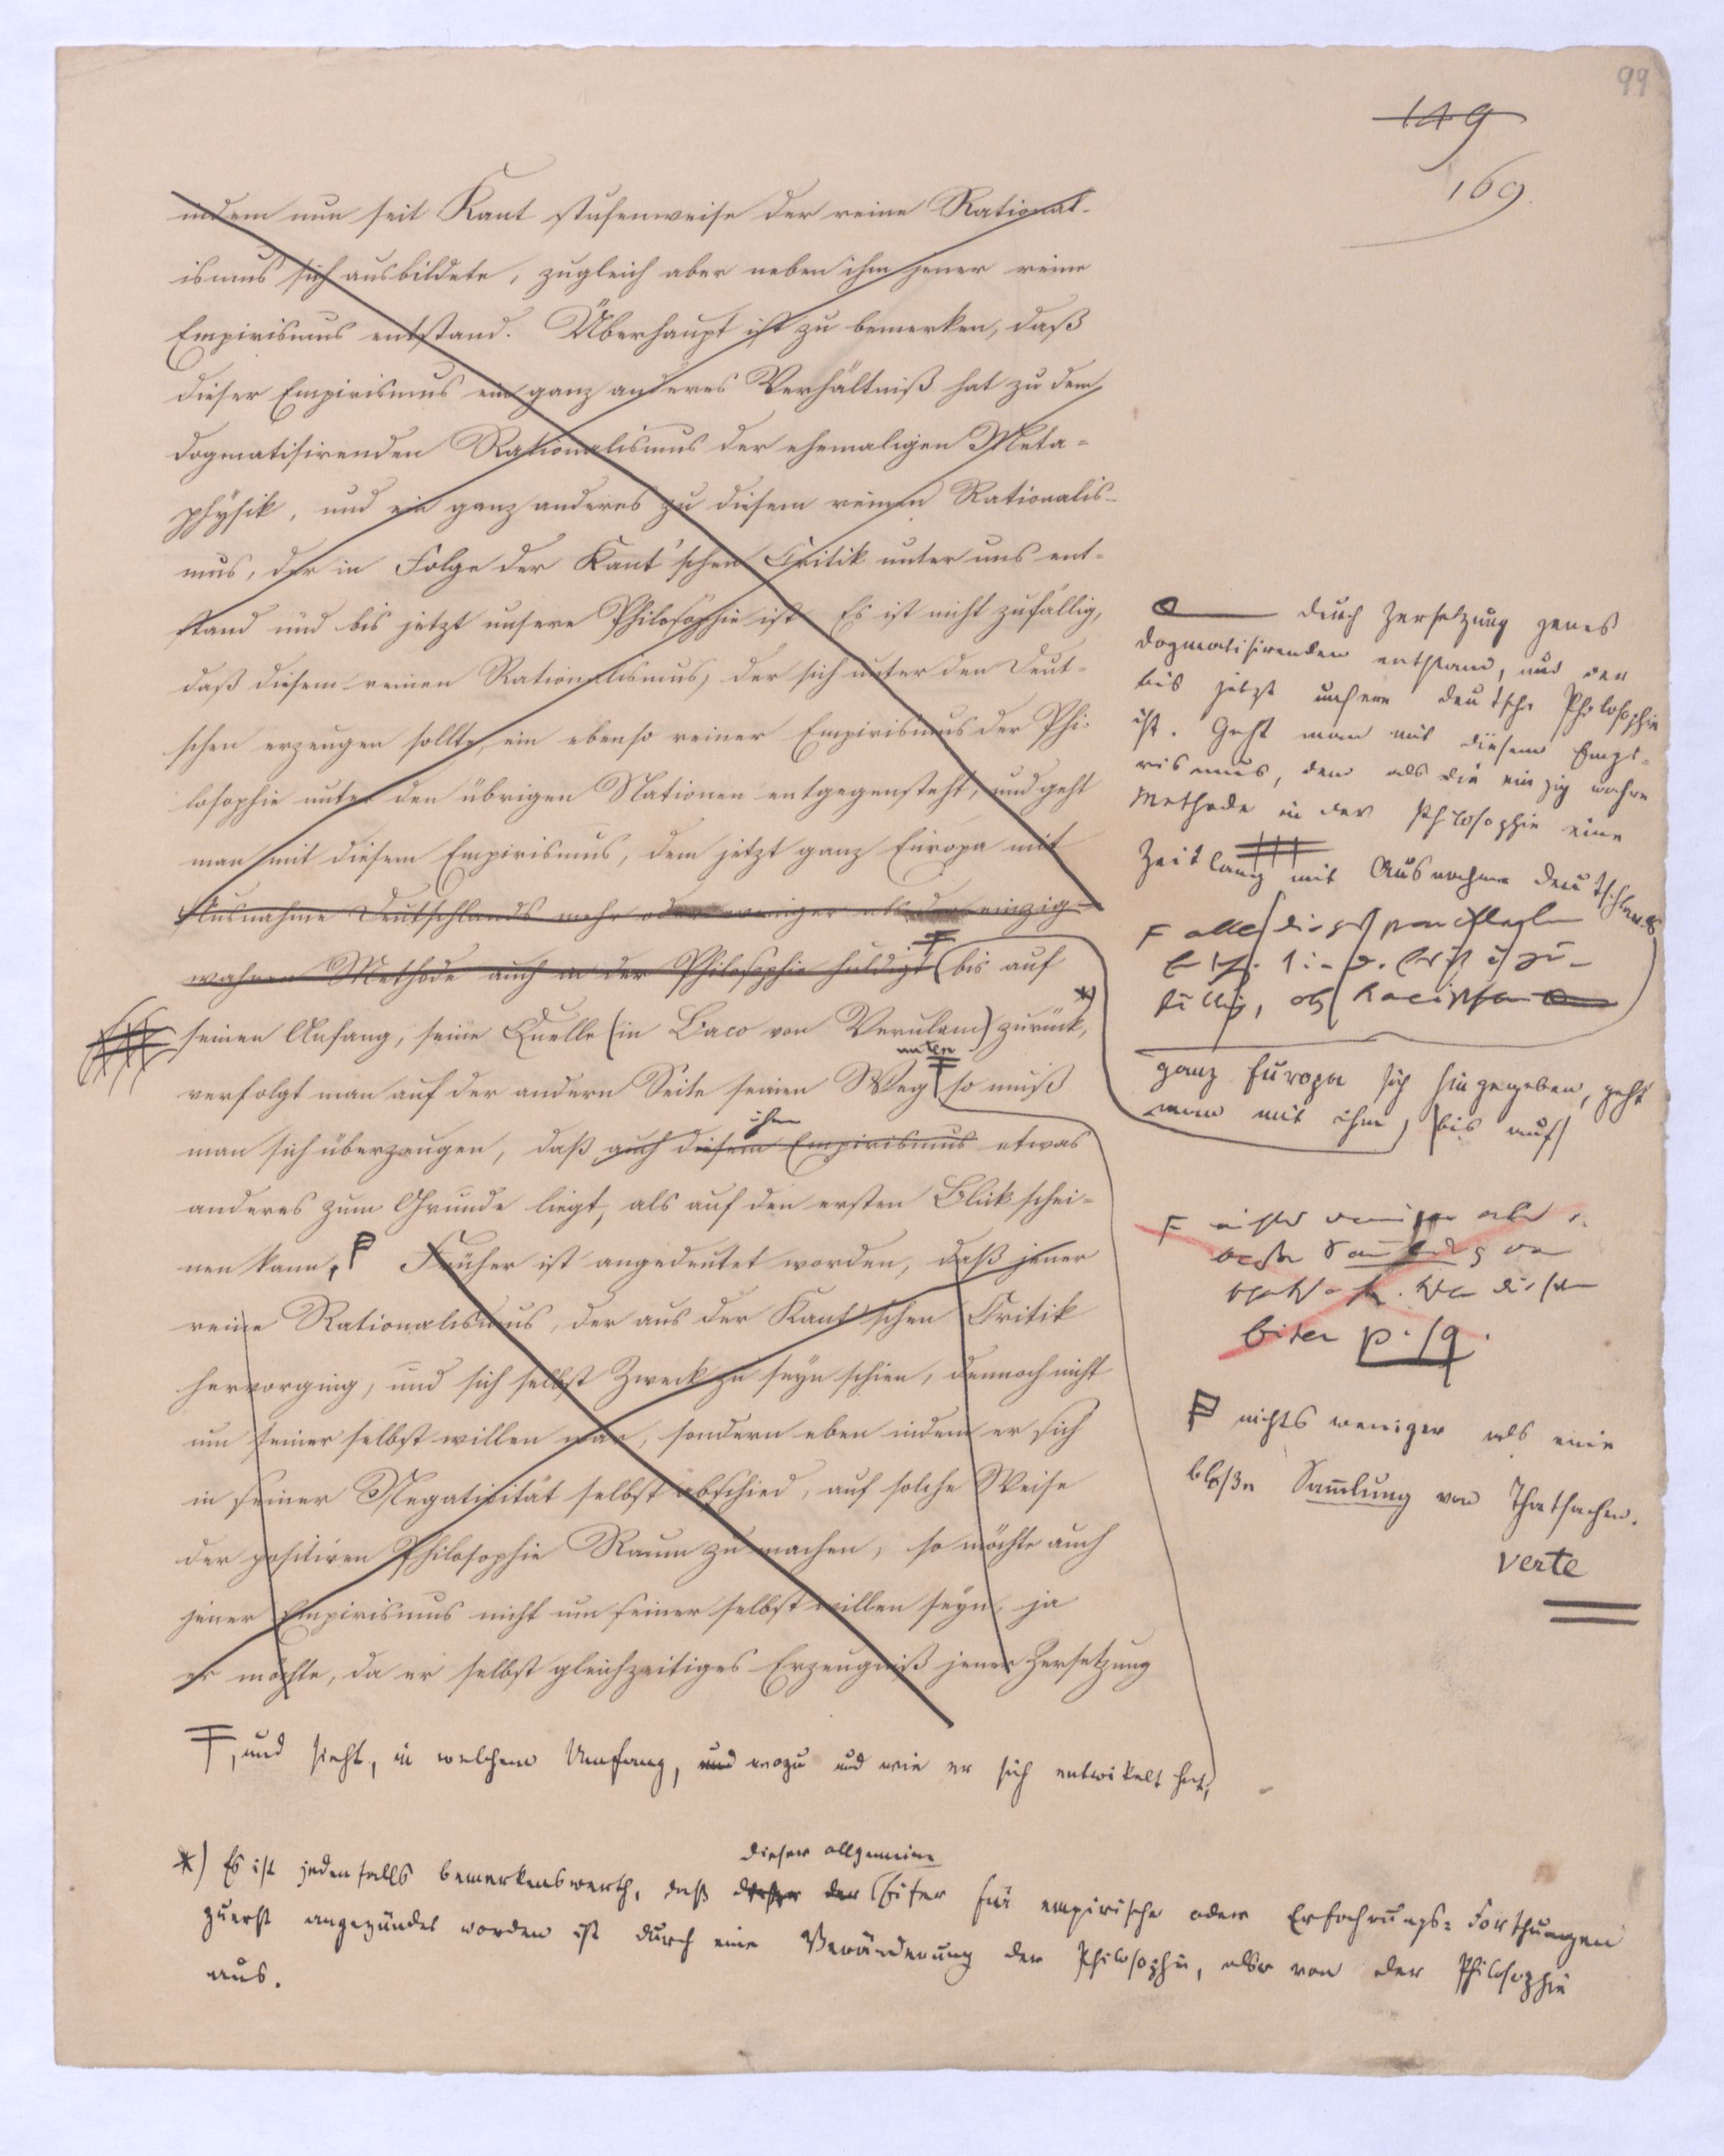 99
149
169.
indem nun seit Kant stufenweise der reine Rational-
ismus sich ausbildete, zugleich aber neben ihm jener reine
Empirismus entstand. Überhaupt ist zu bemerken, daß
dieser Empirismus ein ganz anderes Verhältniß hat zu dem
dogmatisirenden Rationalismus der ehemaligen Meta-
physik, und ein ganz anderes zu diesem reinen Rationalis-
mus, der in Folge der Kant'schen Critik unter uns ent-
stand und bis jetzt unsere Philosophie ist. Es ist nicht zufällig,
daß diesem reinen Rationalismus, der sich unter den Deut-
schen erzeugen sollte, ein ebenso reiner Empirismus der Phi-
losophie unter den übrigen Nationen entgegensteht, und geht
man mit diesem Empirismus, dem jetzt ganz Europa mit
Ausnahme Deutschlands mehr oder weniger als der einzig
wahren Methode auch in der Philosophie huldigt (bis auf
seinen Anfang, seine Quelle (in Baco von Verulam) zurück, *)
unten
verfolgt man auf der andern Seite seinen Weg so muß
ihm
man sich überzeugen, daß auch diesem Empirismus etwas
anderes zum Grunde liegt, als auf den ersten Blick schei-
nen kann, Früher ist angedeutet worden, daß jener
reine Rationalismus, der aus der Kant'schen Critik
hervorging, und sich selbst Zweck zu seyn schien, dennoch nicht
um seiner selbst willen war, sondern eben indem er sich
in seiner Negativität selbst abschied, auf solche Weise
der positiven Philosophie Raum zu machen; so möchte auch
jener Empirismus nicht um seiner selbst willen seyn, ja
er möchte, da er selbst gleichzeitiges Erzeugniß jener Zersetzung
, und sieht, in welchem Umfang, und wozu und wie er sich entwikelt hat,
dieser allgemeine
*) Es ist jedenfalls bemerkenswerth, daß dieser der Eifer für empirische oder Erfahrungs-Forschungen
zuerst angezündet worden ist durch eine Veränderung der Philosophie, also von der Philosophie
aus.
durch Zersetzung jenes
dogmatisirenden entstand, und der
bis jetzt unsere deutsche Philosophie
ist. Geht man mit diesem Empi-
rismus, dem als die einzig wahre
Methode in der Philosophie eine
Zeitlang mit Ausnahme Deutschlands
ganz Europa sich hingegeben, geht
man mit ihm, (bis auf)
p. 19.
nichts weniger als eine
bloßn Sam̄lung von Thatsachen.
verte